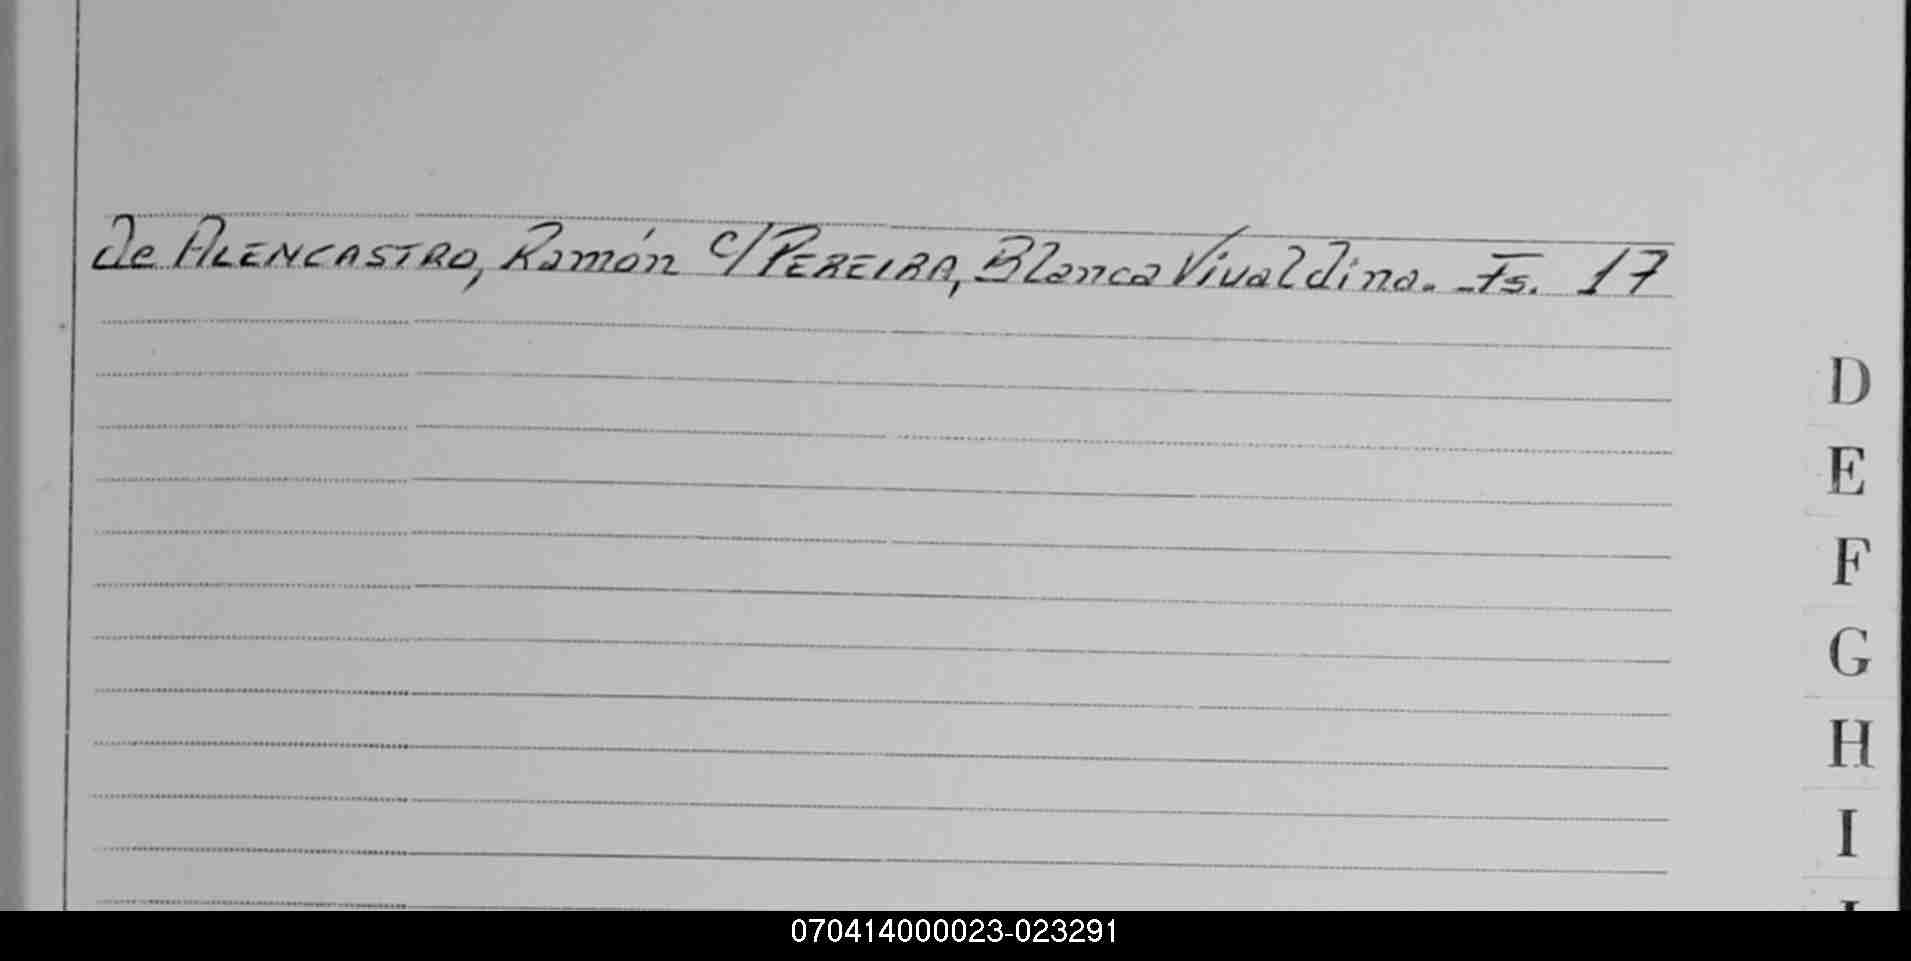 De ALENCASTRO, Ramón c/ PEREIRA, Blanca Vivaldina. - Fs. 17
D
E
F
G
H
I
070414000023-023291